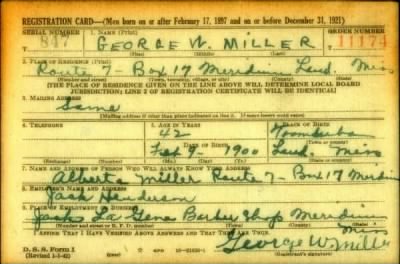 REGISTRATION CARD—(Men born on or after February 17, 1897 and on or before December 31, 1921)
SERIAL NUMBER 1. NAME (Print) ORDER NUMBER
847 GEORGE W. MILLER 11174
2. PLACE OF RESIDENCE (Print)
Route 7- Box 17 Meridian Laud. Miss
(Number and street) (Town, township, village, or city) (County) (State)
(THE PLACE OF RESIDENCE GIVEN ON THE LINE ABOVE WILL DETERMINE LOCAL BOARD
JURISDICTION; LINE 2 OF REGISTRATION CERTIFICATE WILL BE IDENTICAL)
3. MAILING ADDRESS
Same
(Mailing address if other than place indicated on line 2. If same insert word same)
4. TELEPHONE 5. AGE IN YEARS 6. PLACE OF BIRTH
42
DATE OF BIRTH
Feb 9- 1900 Laud. Miss
7. NAME AND ADDRESS OF PERSON WHO WILL ALWAYS KNOW YOUR ADDRESS
Alberta Miller Route 7- Box 17 Meridian
8. EMPLOYER'S NAME AND ADDRESS
Jack Henderson
9. PLACE OF EMPLOYMENT OR BUSINESS
Jacks La Gena Barber Shop Meridian Miss
(Number and street or R. F. D. number) (Town) (County) (State)
I AFFIRM THAT I HAVE VERIFIED ABOVE ANSWERS AND THAT THEY ARE TRUE.
D. S. S. Form 1
(Revised 1-1-42) (over) 16-21630-1
George W. Miller